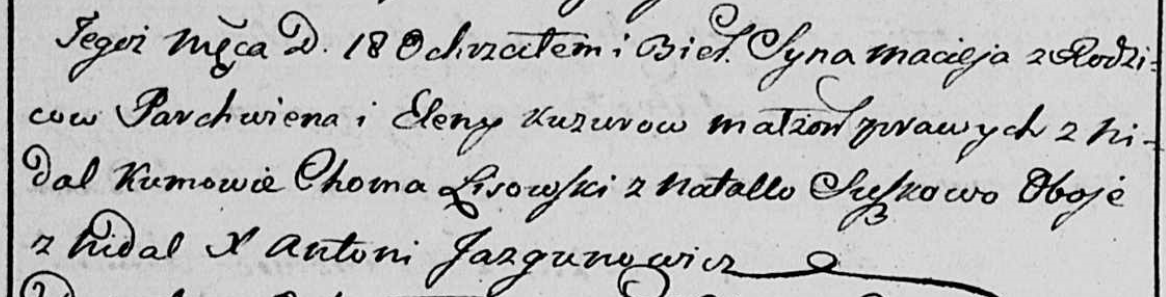 Tegoż Męca D. 18 Ochrzciłem i Bież. Syna Macieja z Rodzi=
cow Parchwiena i Eleny Kuzurow małżon prawych z Ni-
dal Kumowie Choma Lisowski z Natallo Suszkowo Oboje
z Nidal X Antoni Jazgunowicz